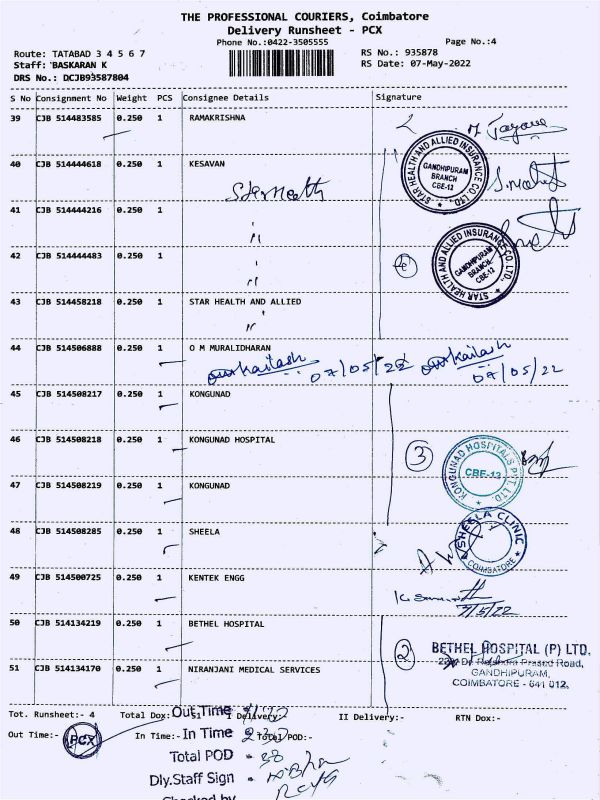 THE PROFESSIONAL COURIERS, Coimbatore
Delivery Runsheet - PCX
Phone No.:0422-3505555
Page No.:4
Route: TATABAD 3 4 5 6 7
RS No.: 935878
Staff: BASKARAN K
RS Date: 07-May-2022
DRS No.: DCJB93587804
S No Consignment No Weight PCS Consignee Details Signature
39 CJB 514483585 0.250 1 RAMAKRISHNA
40 CJB 514444618 0.250 1 KESAVAN
STAR HEALTH AND ALLIED INSURANCE CO. LTD.
GANDHIPURAM BRANCH CBE-12
41 CJB 514444216 0.250 1
42 CJB 514444483 0.250 1
STAR HEALTH AND ALLIED INSURANCE CO. LTD.
GANDHIPURAM BRANCH CBE-12
43 CJB 514458218 0.250 1 STAR HEALTH AND ALLIED
44 CJB 514506888 0.250 1 O M MURALIDHARAN
Kailash 07/05/22 Kailash 07/05/22
45 CJB 514508217 0.250 1 KONGUNAD
46 CJB 514508218 0.250 1 KONGUNAD HOSPITAL
3
KONGUNAD HOSPITALS PVT. LTD.
CBE-12
47 CJB 514508219 0.250 1 KONGUNAD
48 CJB 514508285 0.250 1 SHEELA
SHEELA CLINIC
COIMBATORE
49 CJB 514500725 0.250 1 KENTEK ENGG
7/5/22
50 CJB 514134219 0.250 1 BETHEL HOSPITAL
2
BETHEL HOSPITAL (P) LTD.
Prasad Road,
GANDHIPURAM,
COIMBATORE - 641 012.
51 CJB 514134170 0.250 1 NIRANJANI MEDICAL SERVICES
Tot. Runsheet:- 4 Total Dox:- 51 I Delivery:- II Delivery:- RTN Dox:-
Out Time
Out Time:- In Time:- Total POD:-
PCX
In Time
Total POD - 38
Dly.Staff Sign -
Checked by